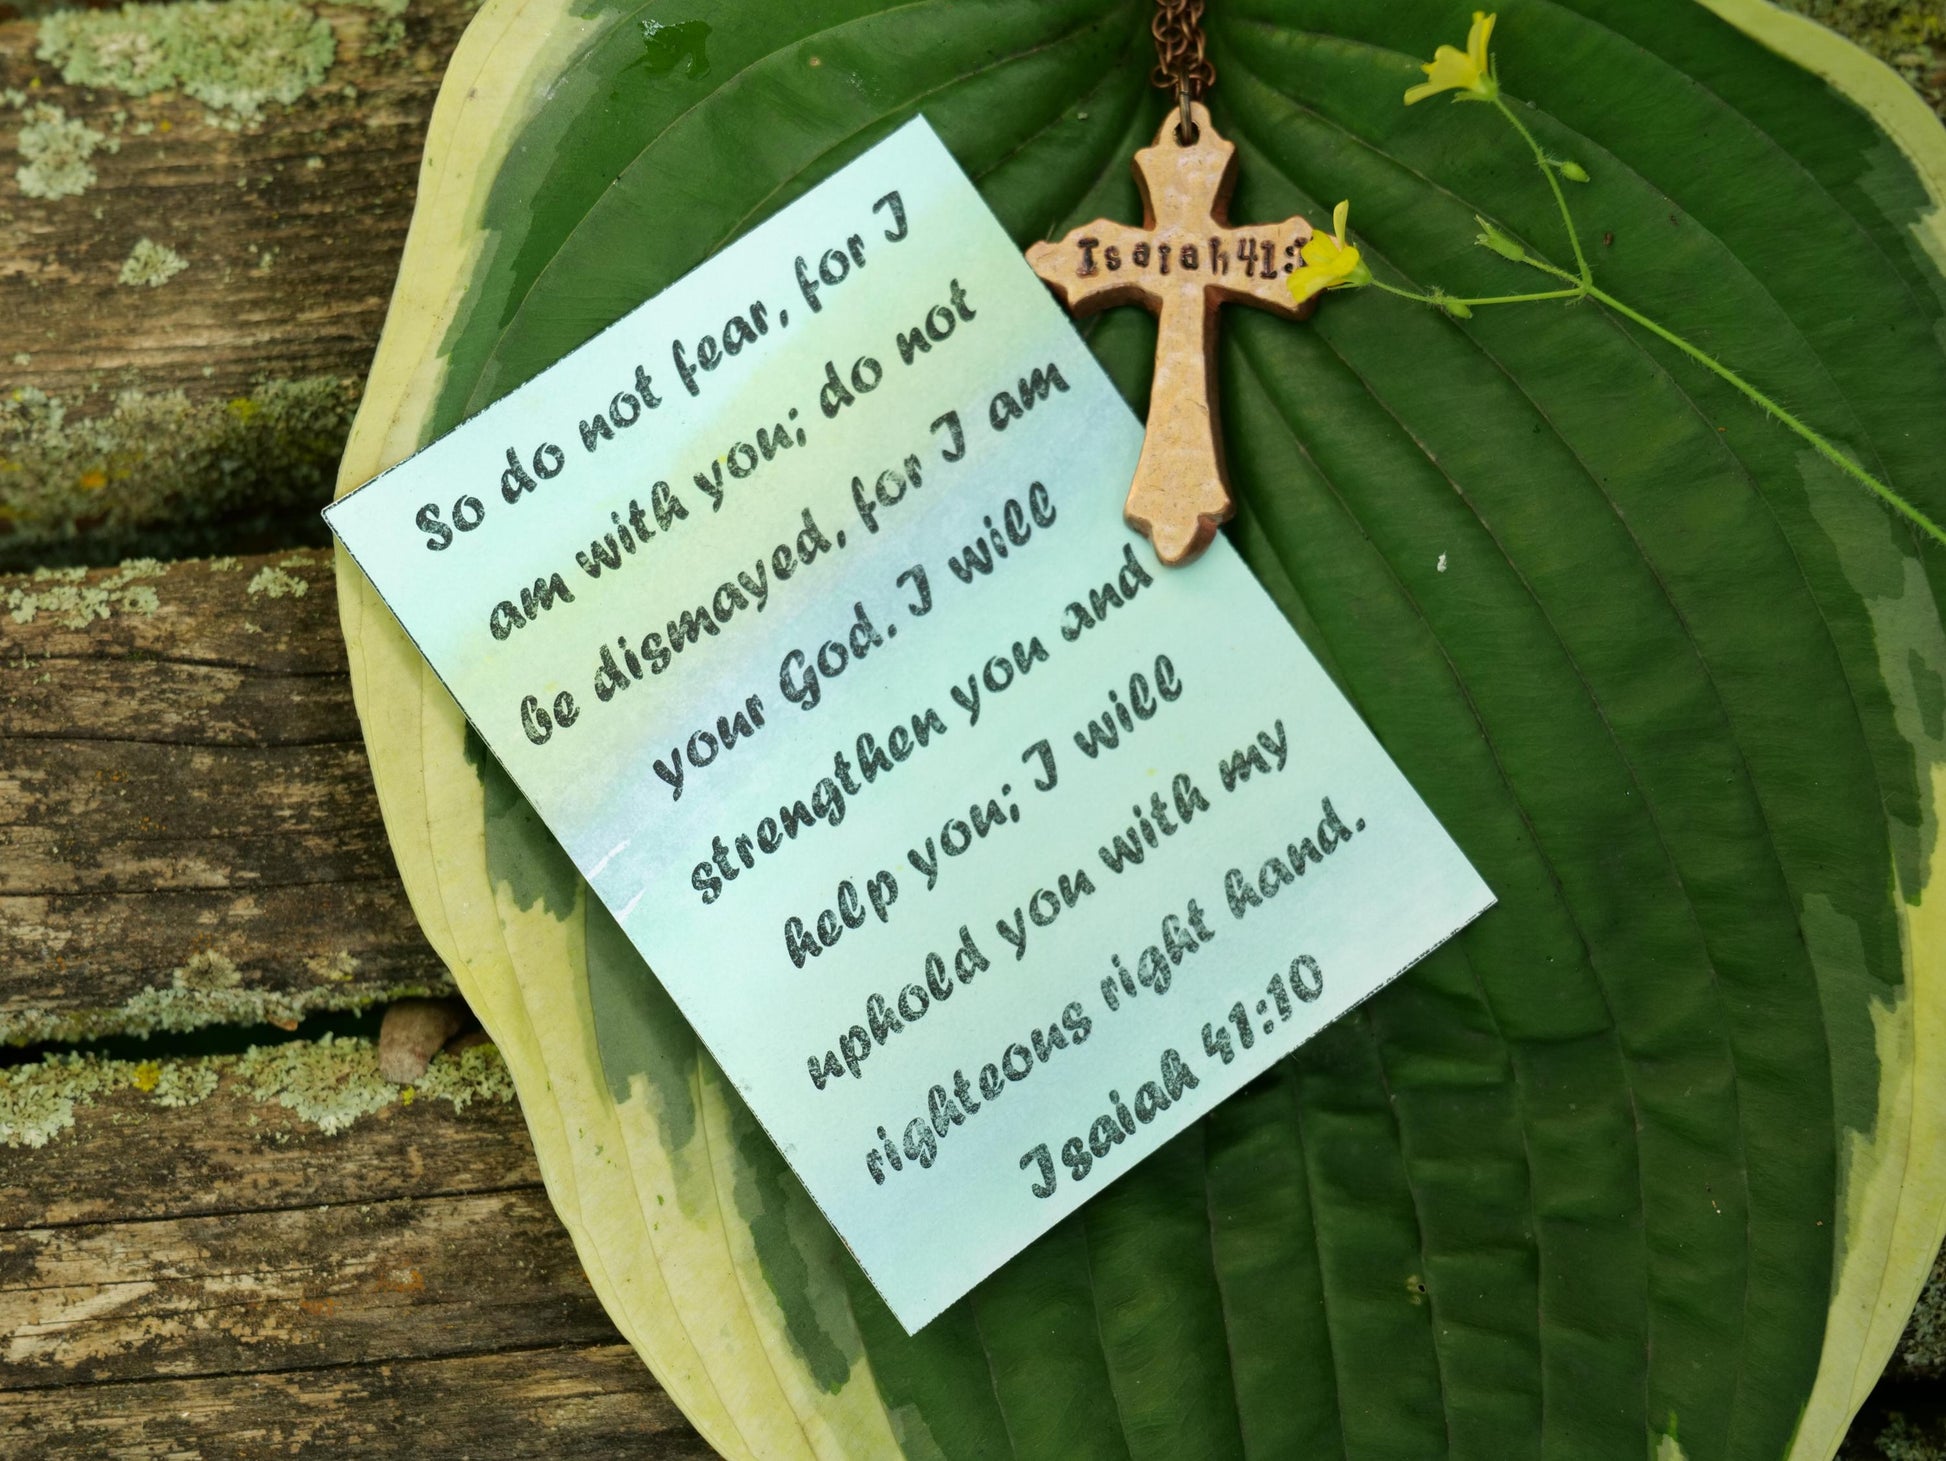 So do not fear, for I
am with you; do not
be dismayed, for I am
your God. I will
strengthen you and
help you; I will
uphold you with my
righteous right hand.
Isaiah 41:10
Isaiah 41: